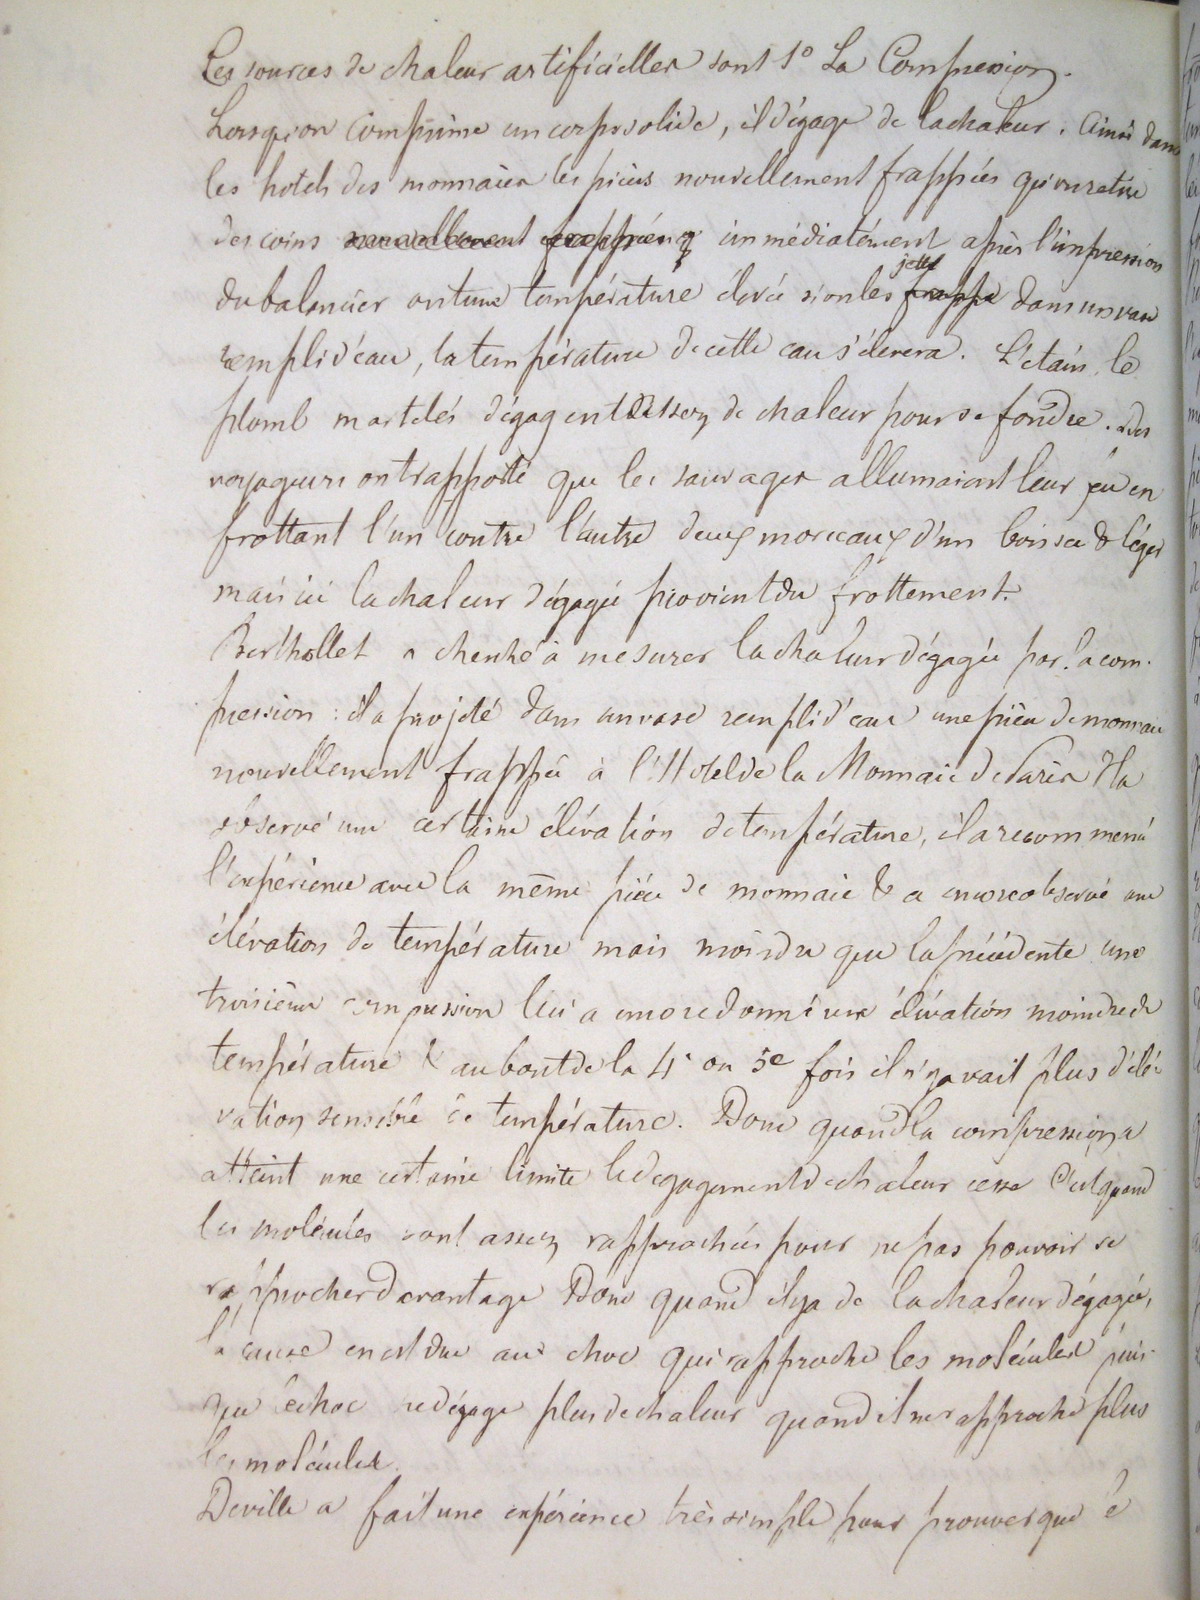 Les sources de chaleur artificielles sont 1° La Compression.
Lorsqu'on comprime un corps solide, il dégage de la chaleur. Ainsi dans
les hotels des monnaies les pièces nouvellement frappées qu'on retire
des coins nouvellement frappées immédiatement après l'impression
du balancier ont une température élevée si on les frappe jette dans un vase
rempli d'eau, la température de cette eau s'élevera. L'étain, le
plomb martelés dégagent assez de chaleur pour se fondre. Des
voyageurs ont rapporté que les sauvages allumaient leur feu en
frottant l'un contre l'autre deux morceaux d'un bois sec & léger
mais ici la chaleur dégagée provient du frottement.
Berthollet a cherché à mesurer la chaleur dégagée par la com-
pression : il a projeté dans un vase rempli d'eau une pièce de monnaie
nouvellement frappée à l'Hotel de la Monnaie de Paris Il a
observé une certaine élévation de température, il a recommencé
l'expérience avec la même pièce de monnaie & a encore observé une
élévation de température mais moindre que la précédente une
troisième compression lui a encore donné une élévation moindre de
température & au bout de la 4e ou 5e fois il n'y avait plus d'élé-
vation sensible de température. Donc quand la compression a
atteint une certaine limite le dégagement de chaleur cesse C'est quand
les molécules sont assez rapprochées pour ne pas pouvoir se
rapprocher davantage Donc quand il y a de la chaleur dégagée,
la cause en est due au choc qui rapproche les molécules puis-
que le choc ne dégage plus de chaleur quand il ne rapproche plus
les molécules.
Deville a fait une expérience très simple pour prouver que